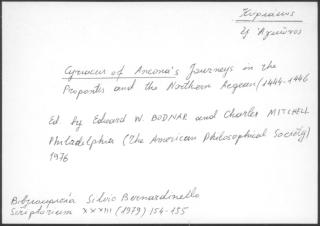 Κυριακος
εξ Αγκώνος
Cyriacus of Ancona's Journeys in the
Propontis and the Northern Aegean/1444-1446
Ed. by Edward W. BODNAR and Charles MITCHELL
Philadelphia (The American Philosophical Society)
1976
Βιβλιοκρισία Silvio Bernardinello
Scriptorium XXXIII (1979) 154-155